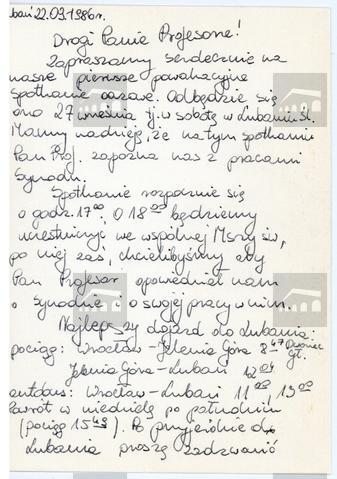 bań 22.09.1986r.
Drogi Panie Profesorze!
Zapraszamy serdecznie na
nasze pierwsze powakacyjne
spotkanie oazowe. Odbędzie się
ono 27 września tj. w sobotę w Lubaniu Śl.
Mamy nadzieję, że na tym spotkaniu
Pan Prof. zapozna nas z pracami
Synodu.
Spotkanie rozpocznie się
o godz. 17⁰⁰. O 18⁰⁰ będziemy
uczestniczyć we wspólnej Mszy św.,
po niej zaś, chcielibyśmy aby
Pan Profesor opowiedział nam
o Synodzie i o swojej pracy w nim.
Najlepszy dojazd do Lubania:
pociąg: Wrocław-Jelenia Góra 8⁴⁷ Dworzec Gł.
Jelenia Góra-Lubań 12⁰⁴
autobus: Wrocław-Lubań 11⁰⁰, 13⁰⁰
Powrót w niedzielę po południu
(pociąg 15⁴³). Po przyjeździe do
Lubania proszę zadzwonić